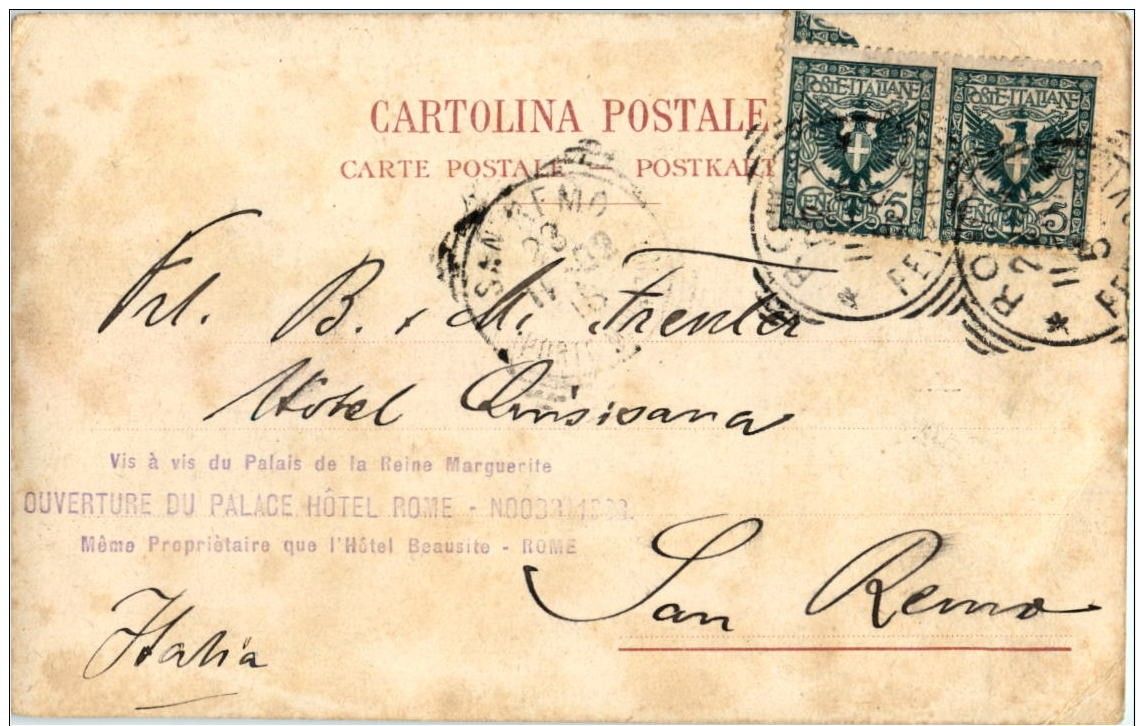 CARTOLINA POSTALE
CARTE POSTALE — POSTKART
POSTE·ITALIANE
CENT 5
POSTE·ITALIANE
CENT 5
SAN REMO
23
11
ROMA
ROMA
Frl. B. & M. Frenler
Hotel Quisisana
Vis à vis du Palais de la Reine Marguerite
OUVERTURE DU PALACE HÔTEL ROME -
Même Propriètaire que l'Hôtel Beausite - ROME
San Remo
Italia